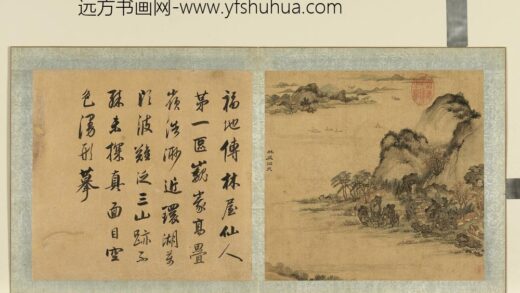 远方书画网-www.yfshuhua.com
福地傳林屋仙人
第一區巍峩高疊
嶺浩渺近環湖萬
頃波難泛三山跡不
殊未探真面目空
色漫形摹
林屋洞天